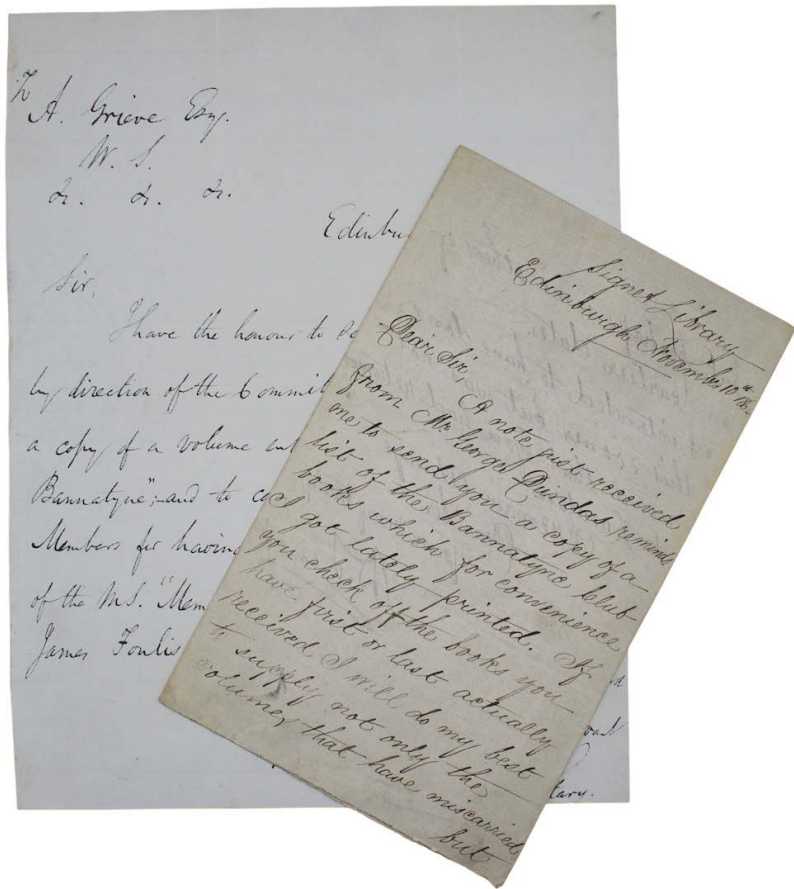 To
A. Grieve Esq.
W. S.
&. &. &.
Edinbu
Sir,
I have the honour to
by direction of the Committ
a copy of a volume
Bannatyne"; and to
Members for having
of the M.S. "Mem
James Foulis
tary.
Signet Library
Edinburgh, November 10th
Dear Sir,
A note just received
from Mr George Dundas reminds
me to send you a copy of a
list of the Bannatyne Club
books which for convenience
I got lately printed. If
you check off the books you
have first or last actually
received I will do my best
to supply not only the
volumes that have miscarried
but